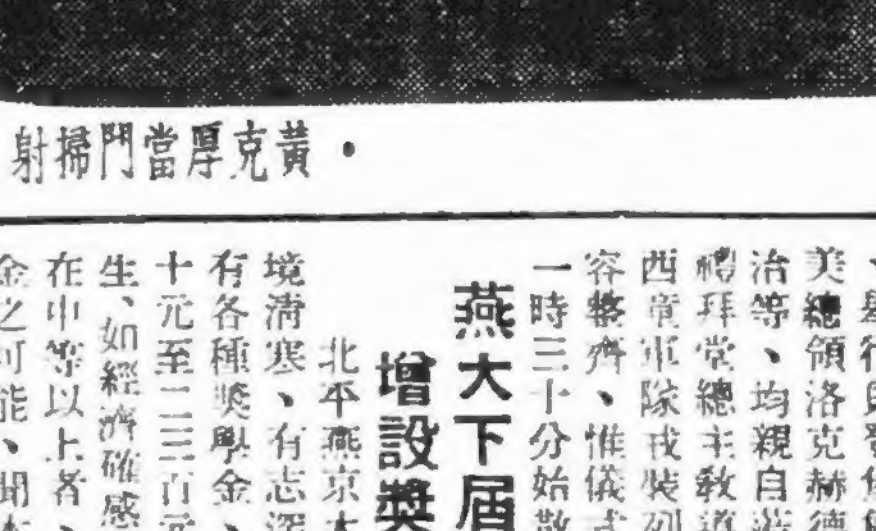 黃克厚當門掃射
美總領洛克赫德
治等、均親自
禮拜堂總主教
西童軍隊戎裝列
容整齊、惟儀式
一時三十分始散
燕大下屆
增設獎
北平燕京大
境淸寒、有志深
有各種奬學金、
十元至二三百元
生、如經濟確感
在中等以上者、
金之可能、聞本